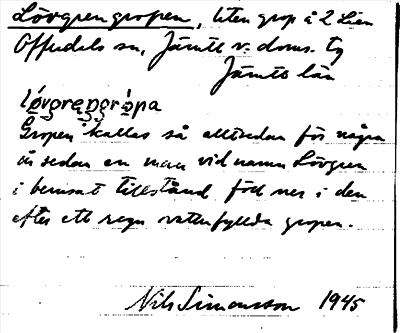 Lövgrengropen, liten grop å 2 Lien
Offerdals sn, Jämtl. v. doms. tg
Jämtl. län
Gropen kallas så alltsedan för några
år sedan en man vid namn Lövgren
i berusat tillstånd föll ner i den
efter ett regn vattenfyllda gropen.
Nils Simonsson 1945